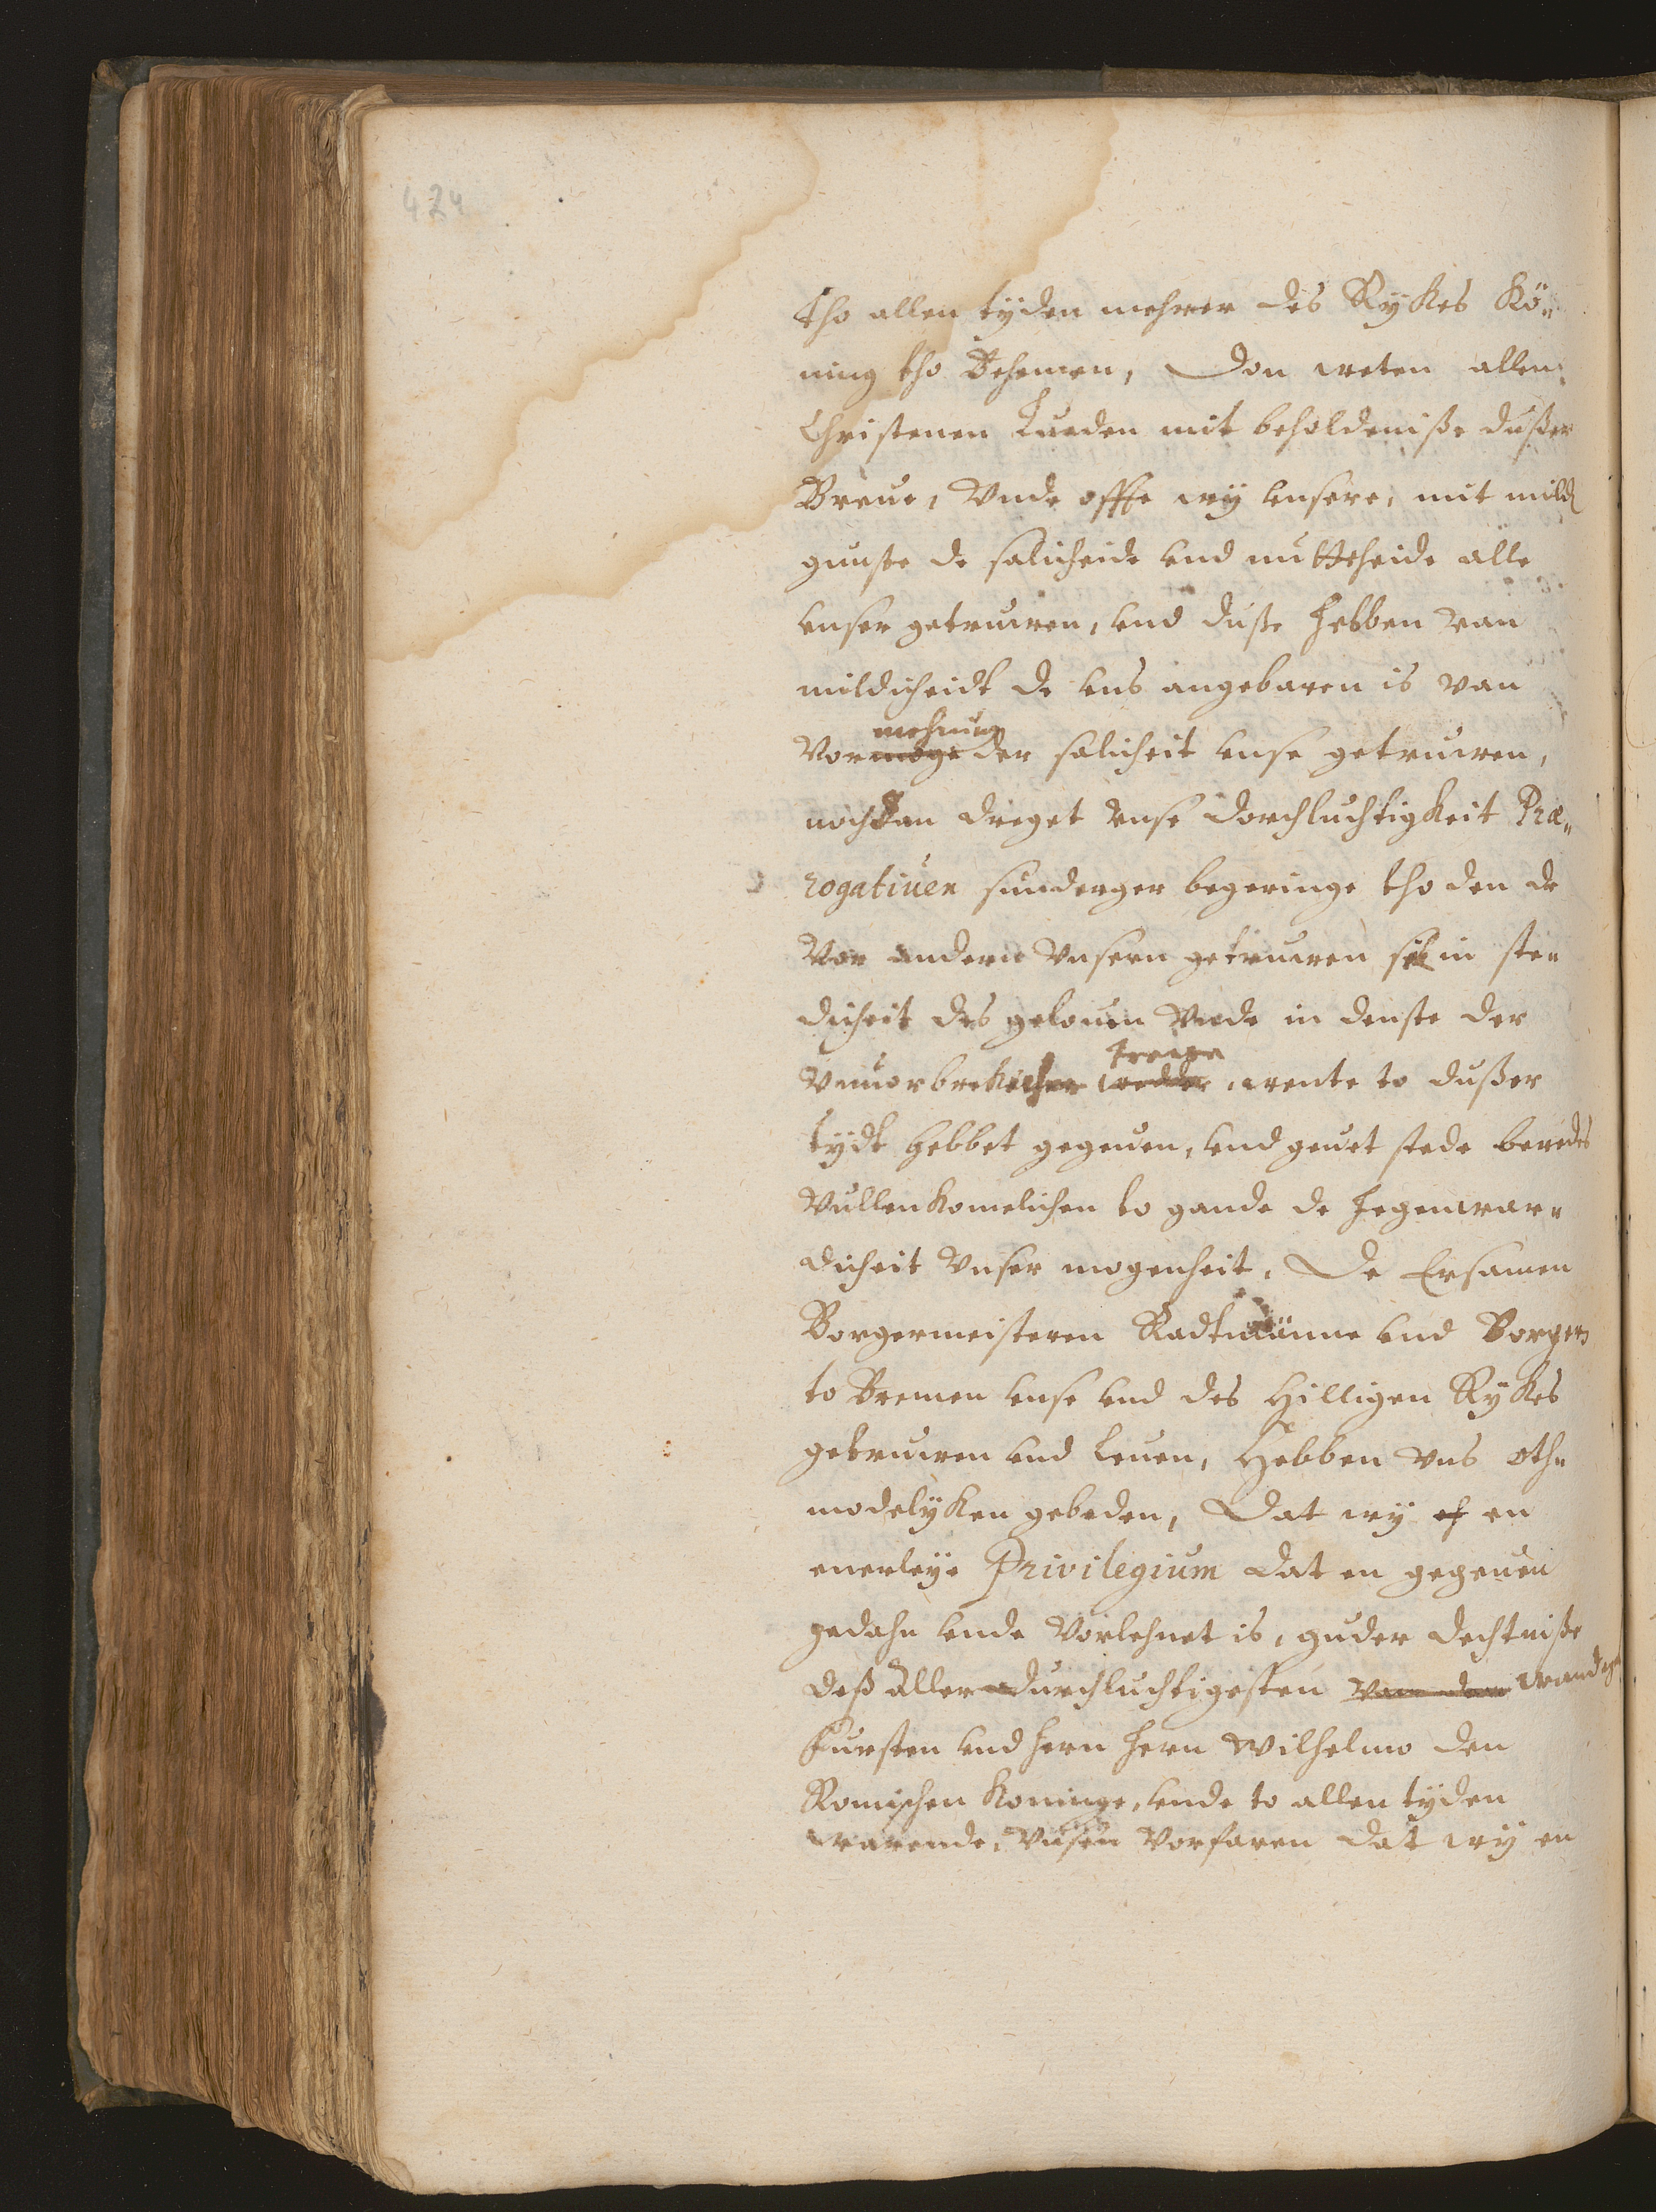 424
tho allen tyden mehrer des Rykes Kö„
ning tho Behemen, Don weten allen
Christenen Lueden mit beholdeniße dußer
Breue, Vnde offte wÿ vnsere, mit mild
gunste de salicheide vnd nutticheide alle
vnser getruwen, vnd duße hebben van
mildicheidt de vns angebaren is van
mehrung
Vormoge der salicheit vnse getruwen,
nochdan dreget vnse dorchluchtigkeit Præ„
rogatiuen sunderger begeringe tho den de
Vor andern vnsern getruwen sik in ste„
dicheit des gelouen Vnde in denste der
trewe
Vnuorbrekelichen wedder, wente to dußer
tÿdt hebbet gegeuen, vnd geuet stede beredes
Vullenkomelichen to gande de jegenwar„
dicheit vnser mogenheit. De Ersamen
Borgermeisteren Radtmänne vnd Borger
to Bremen vnse vnd des Hilligen Rykes
getruwen vnd leuen, Hebben vns oth„
modelÿken gebeden, Dat wÿ en
enerleÿe Privilegium dat en gegeuen
gedahn vnde Vorlehnet is, guder dechtniße
deß Aller durchluchtigesten van den wandges
fursten vnd hern hern Wilhelmo den
Romischen Koninge, vnde to allen tÿden
warende, Vnsen Vorfaren dat wÿ en